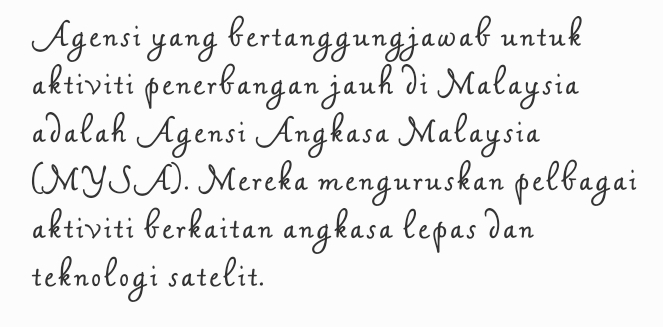 Agensi yang bertanggungjawab untuk
aktiviti penerbangan jauh di Malaysia
adalah Agensi Angkasa Malaysia
(MYSA). Mereka menguruskan pelbagai
aktiviti berkaitan angkasa lepas dan
teknologi satelit.